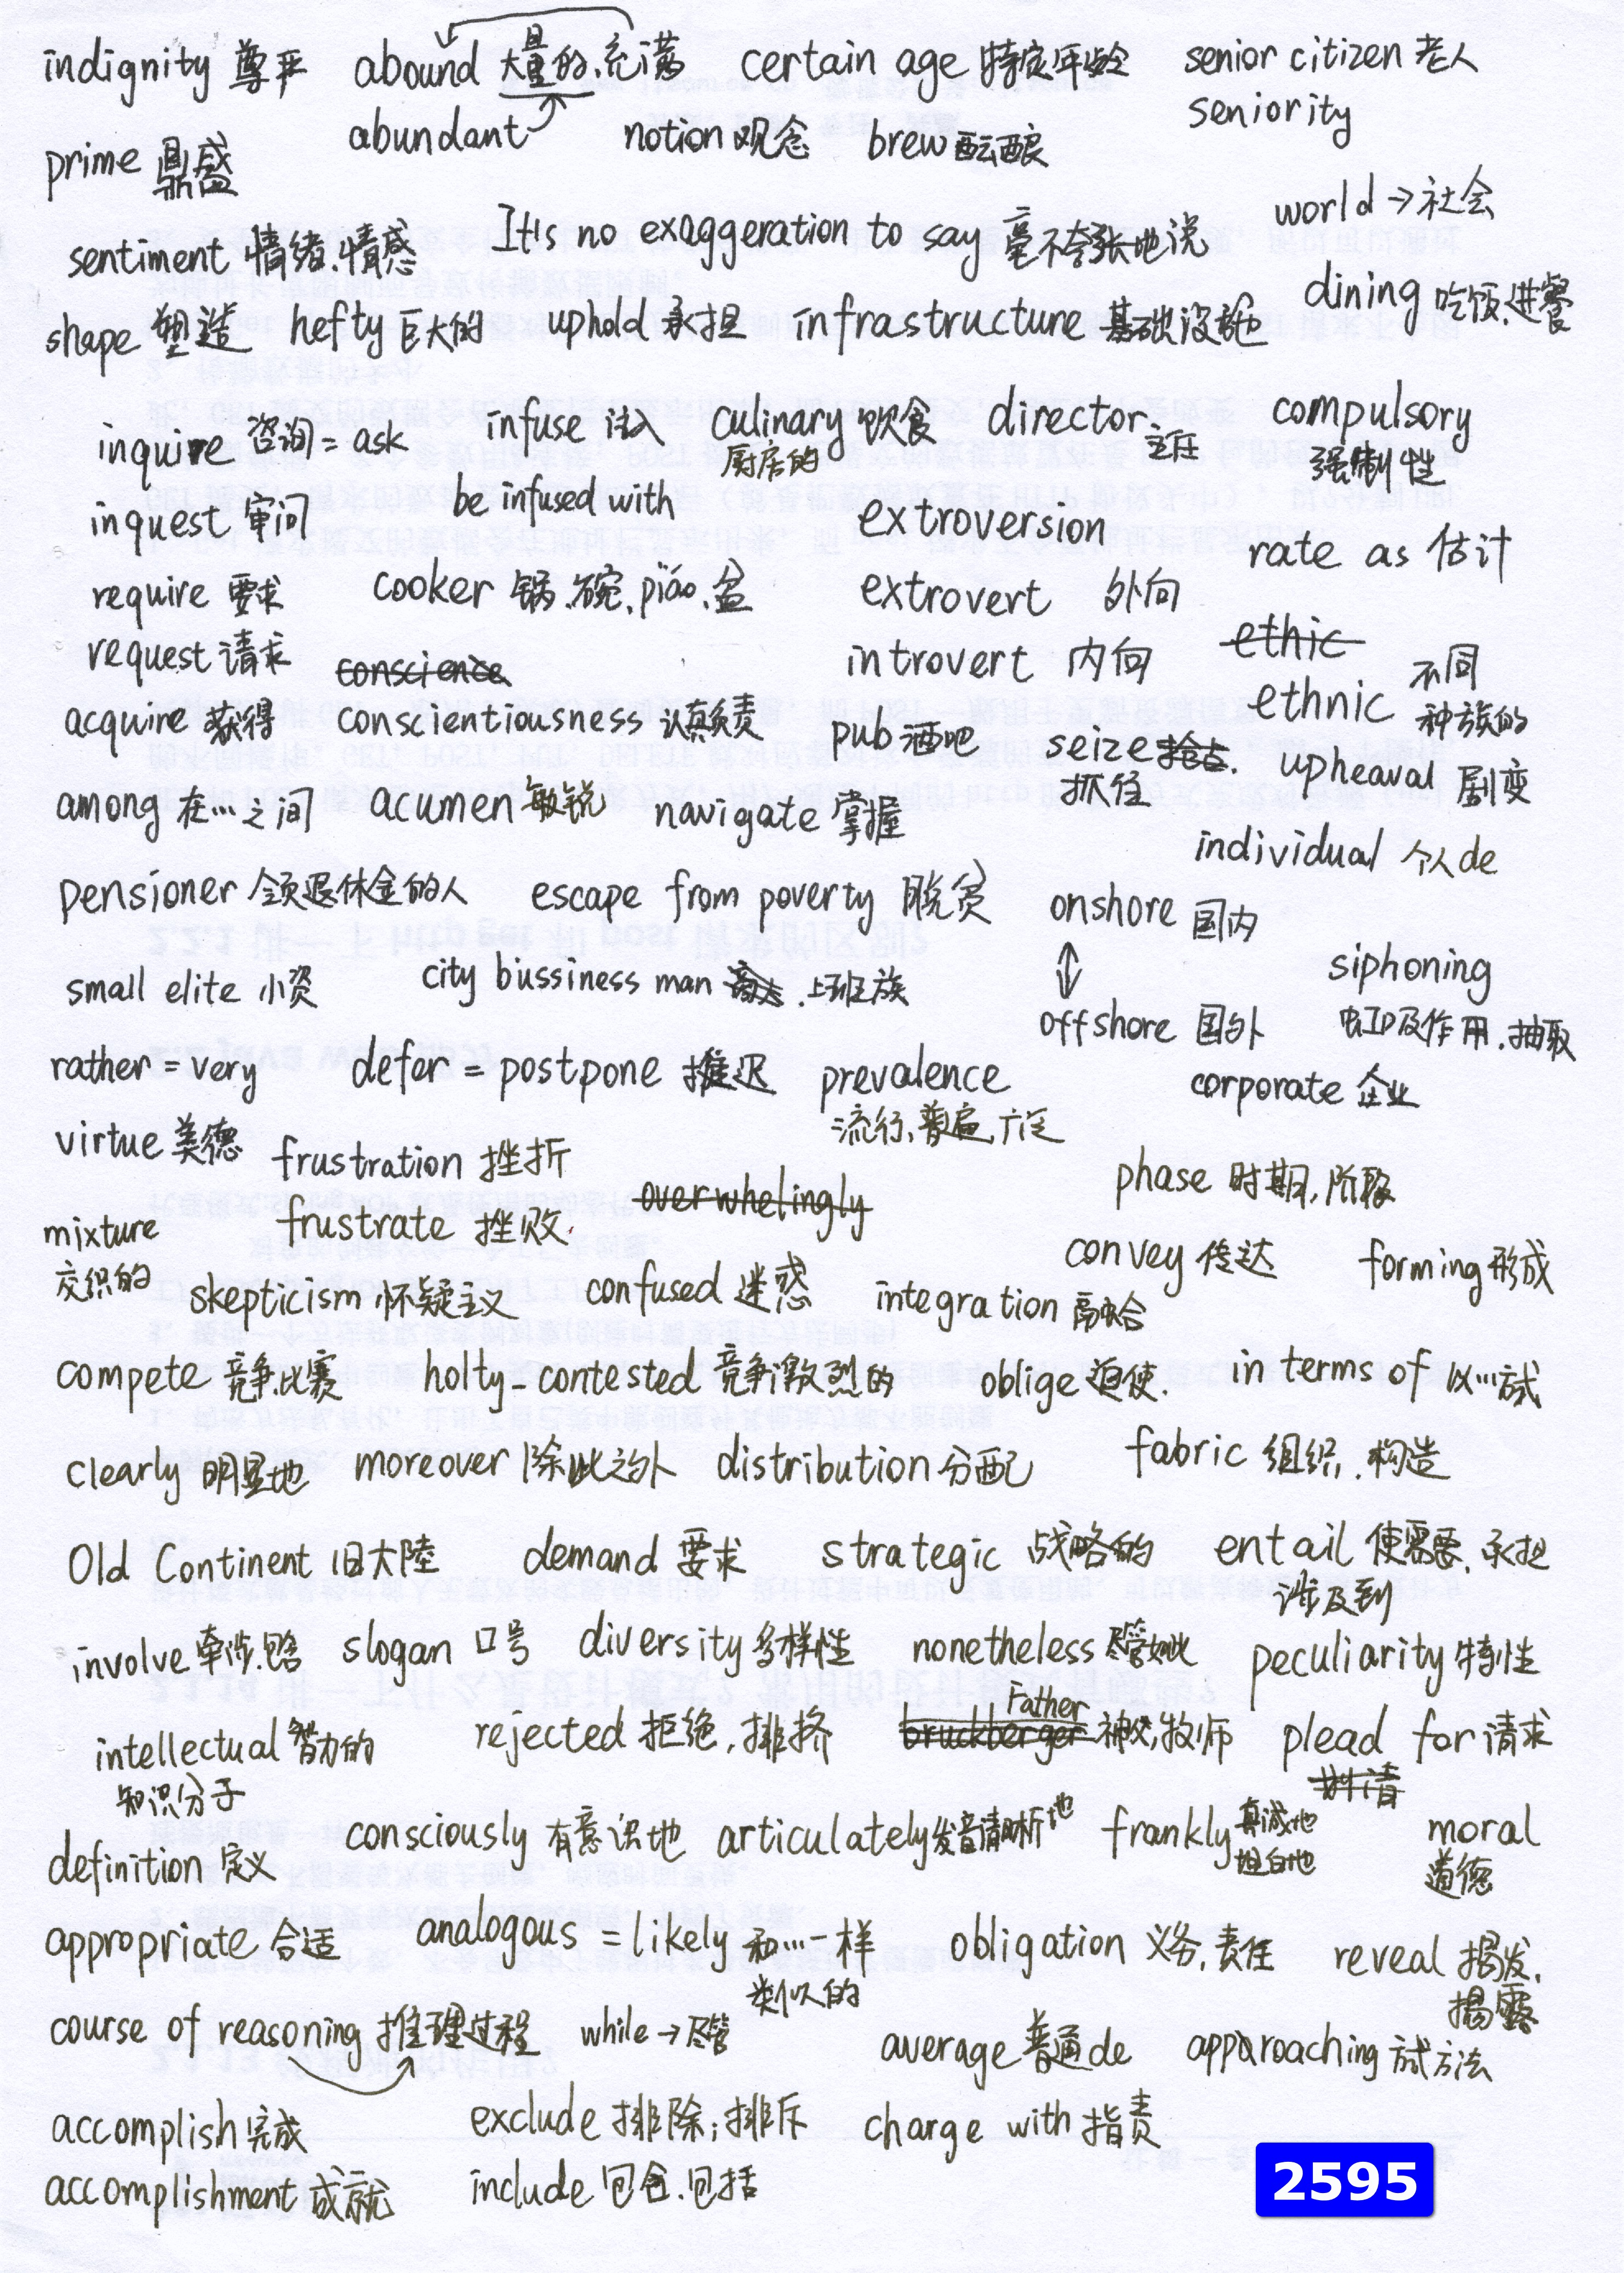 indignity 尊严 abound 大量的、充满 certain age 特定年龄 senior citizen 老人
prime 鼎盛 abundant notion 观念 brew 酝酿 seniority
sentiment 情绪、情感 It's no exaggeration to say 毫不夸张地说 world → 社会
shape 塑造 hefty 巨大的 uphold 承担 infrastructure 基础设施 dining 吃饭、进餐
inquire 咨询 = ask infuse 注入 culinary 饮食 director 主任 compulsory
厨房的 强制性
inquest 审问 be infused with extroversion rate as 估计
require 要求 cooker 锅、碗、piáo、盆 extrovert 外向
request 请求 conscience introvert 内向 ethic
acquire 获得 conscientiousness 认真负责 pub 酒吧 seize 抢占. ethnic 不同
种族的
抓住 upheaval 剧变
among 在…之间 acumen 敏锐 navigate 掌握 individual 个人de
pensioner 领退休金的人 escape from poverty 脱贫 onshore 国内
small elite 小资 city bussiness man 上班族 ↕ siphoning
offshore 国外 虹吸作用.抽取
rather = very defer = postpone 推迟 prevalence corporate 企业
流行、普遍、广泛
virtue 美德 frustration 挫折 overwhelingly phase 时期,阶段
mixture frustrate 挫败 convey 传达 forming 形成
交织的 skepticism 怀疑主义 confused 迷惑 integration 融合
compete 竞争.比赛 holty-contested 竞争激烈的 oblige 迫使. in terms of 以…方式
clearly 明显地 moreover 除此之外 distribution 分配 fabric 组织.构造
Old Continent 旧大陸 demand 要求 strategic 战略的 entail 使需要、承担
涉及到
involve 牵涉.包含 slogan 口号 diversity 多样性 nonetheless 尽管如此 peculiarity 特性
Father
intellectual 智力的 rejected 拒绝,排挤 bruckberger 神父,牧师 plead for 请求
知识分子
definition 定义 consciously 有意识地 articulately 发音清晰地 frankly 真诚地 moral
坦白地 道德
appropriate 合适 analogous = likely 和…一样 obligation 义务,责任 reveal 揭发.
类似的 揭露
course of reasoning 推理过程 while → 尽管 average 普通de approaching 方式方法
accomplish 完成 exclude 排除;排斥 charge with 指责
accomplishment 成就 include 包含.包括
2595